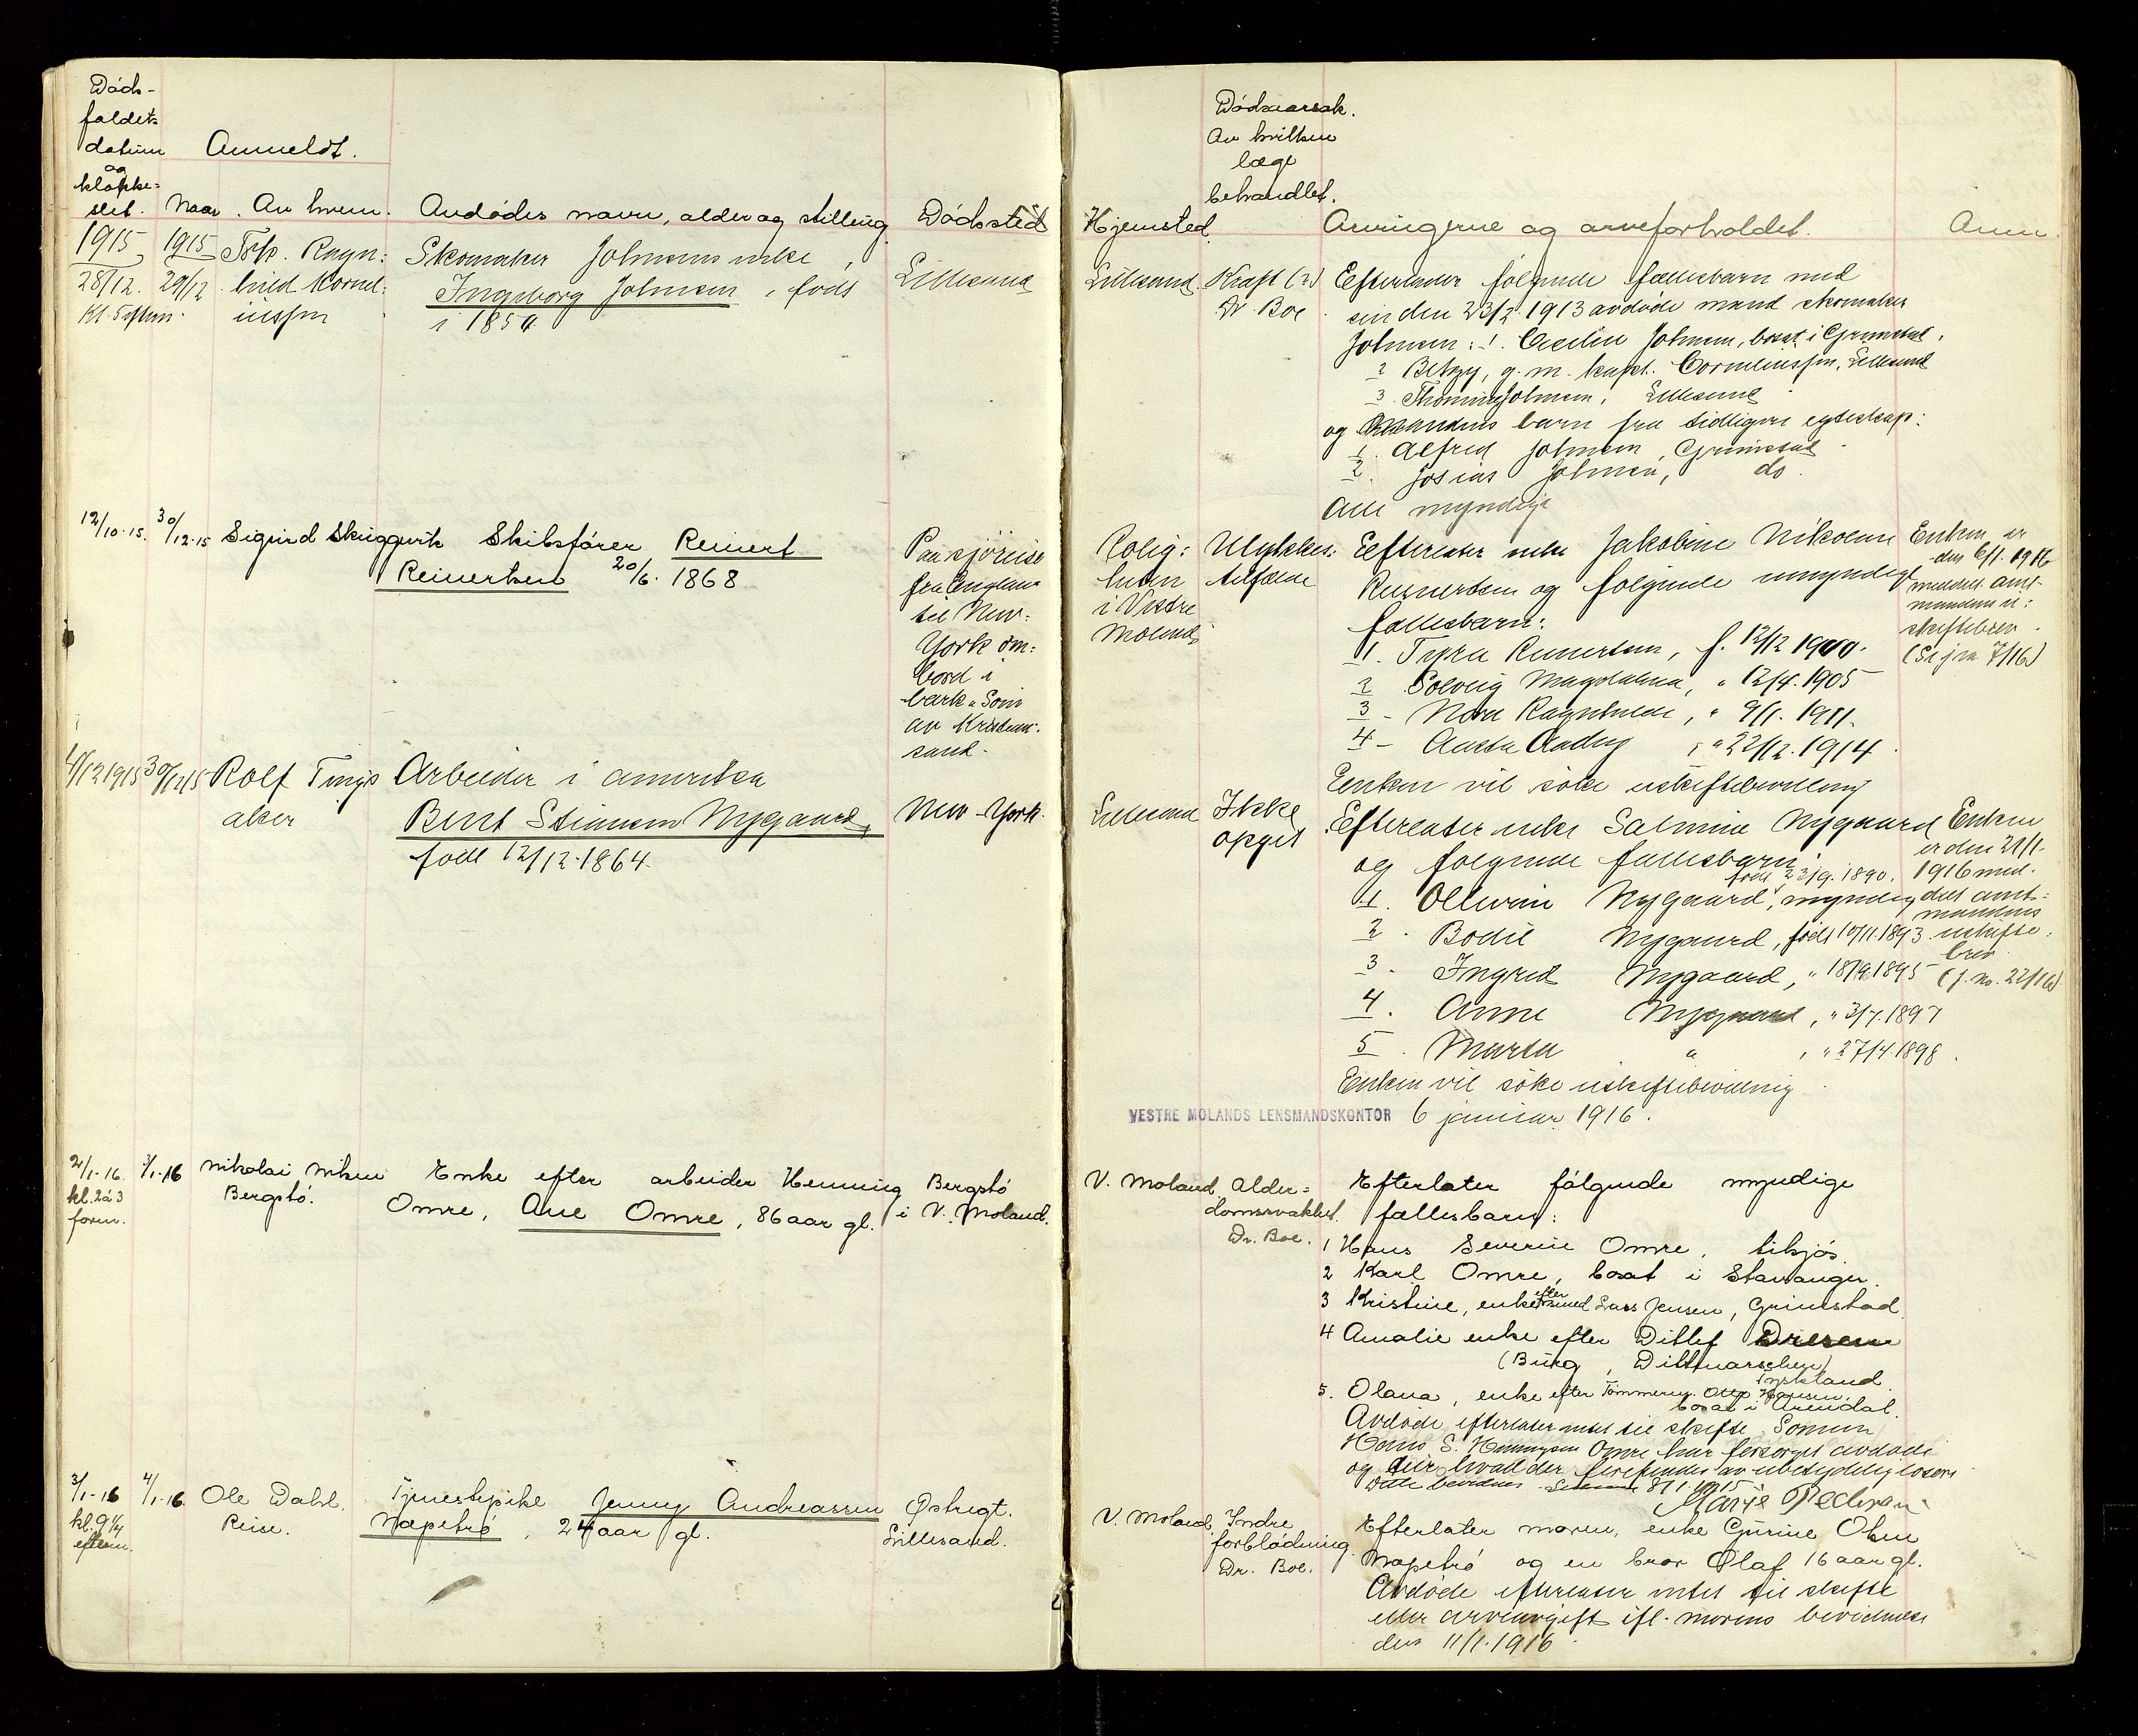 Døds-
faldets
datum
og
klokke-
slet.
Anmeldt.
Naar. Av hvem.
Avdødes navn, alder og stilling
Dødssted
1915 1915 Frk. Ragn:
28/12. 29/12 hild Kornel:
Kl. 5 eftm. iussen
Skomaker Johnsens enke,
Ingeborg Johnsen, født
i 1854.
Lillesand
12/10.15. 30/12.15 Sigurd Skiggevik Skibsfører Reinert
Reinertsen 20/6. 1868
Paa sjöreise
fra England
til New-
York om-
bord i
bark "Som
av Kristian-
sand.
4/12 1915 30/12 15 Rolf Tings
aker
Arbeider i Amerika
Bent Stiansen Nygaard,
født 12/12.1864.
New-York.
2/1.16. 3/1.16 Nikolai Niksen Enke efter arbeider Henning Bergstø
kl. 2 à 3 Bergstø. Omre, Ane Omre, 86 aar gl. i V. Moland.
form.
3/1.16 4/1.16. Ole Dahl. Tjenestepike Jenny Andreassen Østregt.
kl. 9 1/4 Reise. Næpetrø, 24 aar gl. Lillesand.
efterm.
Dødsaarsak.
Av hvilken
læge
behandlet.
Hjemsted. Arvingerne og arveforholdet. Anm.
Lillesand. Kræft (?) Efterlader følgende fællesbarn med
Dr. Boe. sin den 23/2.1913 avdøde mand skomaker
Johnsen: 1. Cecilie Johnsen, bosat i Grimstad,
2 Betzy, g. m. kapt. Corneliussen, Lillesand
3. Thomine Johnsen, Lillesand
og mandens barn fra tidligere egteskap:
1. Alfred Johnsen, Grimstad
2. Josias Johnsen, do.
Alle myndige
Rolig-
heden
i Vestre
Moland
Ulykkes-
tilfælde
Efterlater enke Jakobine Nikoline
Reinertsen og følgende umyndige
fællesbarn:
1. Tyra Reinertsen, f. 12/12 1900.
2 Solveig Magdalena, " 12/4.1905
3 - Nora Ragnhilde, " 9/1.1911.
4 - Aasta Audny, " 22/12.1914.
Enken vil søke uskiftebevilling
Enken er
den 6/1.1916
meddelt amt-
mandens u-
skiftebrev.
(Se j.nr. 7/16)
Lillesand Ikke
opgit
Efterlater enke Salmine Nygaard
og følgende fællesbarn:
født 23/9.1890.
1. Ollevine Nygaard, myndig
2. Bodil Nygaard, født 10/11.1893.
3. Ingrid Nygaard, " 18/9.1895
4. Anne Nygaard, " 3/7.1897
5. Marta " , " 27/4.1898.
Enken vil søke uskiftebevilling.
Enken
er den 21/1.
1916 med-
delt amt-
mandens
uskifte-
brev
(j.no. 22/16)
VESTRE MOLANDS LENSMANDSKONTOR 6 januar 1916.
V. Moland Alder-
domssvakhet.
Dr. Boe.
Efterlater følgende myndige
fællesbarn:
1 Hans Severin Omre, tilsjøs.
2 Karl Omre, bosat i Stavanger.
3 Kristine, enke efter smed Lars Jensen, Grimstad
4 Amalie enke efter Ditlef Dresen
(Burg, Dittmarschen)
Tyskland.
5. Olava, enke efter Tømmerm. Otto Hansen,
bosat i Arendal.
Avdøde efterlater intet til skifte. Sønnen
Hans S. Henningsen Omre har forsørget avdøde
og eier hvad der forefindes av ubetydelig løsøre
Dette bevidnes 8/1.1915
Marie Pedersen
V. Moland. Indre
forblødning.
Dr. Boe.
Efterlater moren, enke Gurine Olsen
Næpetrø og en bror Olaf 16 aar gl.
Avdøde efterlater intet til skifte
eller arveavgift ifl. morens bevidnelse
den 11/1.1916.